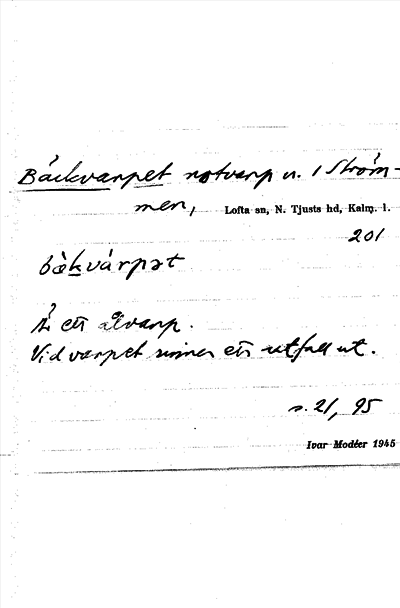 Bäckvarpet notvarp n. i Ström-
men, Lofta sn, N. Tjusts hd, Kalm. l.
201
bäkvárpət
Är ett ålvarp.
Vid varpet rinner ett utfall ut.
s. 21, 95
Ivar Modéer 1945